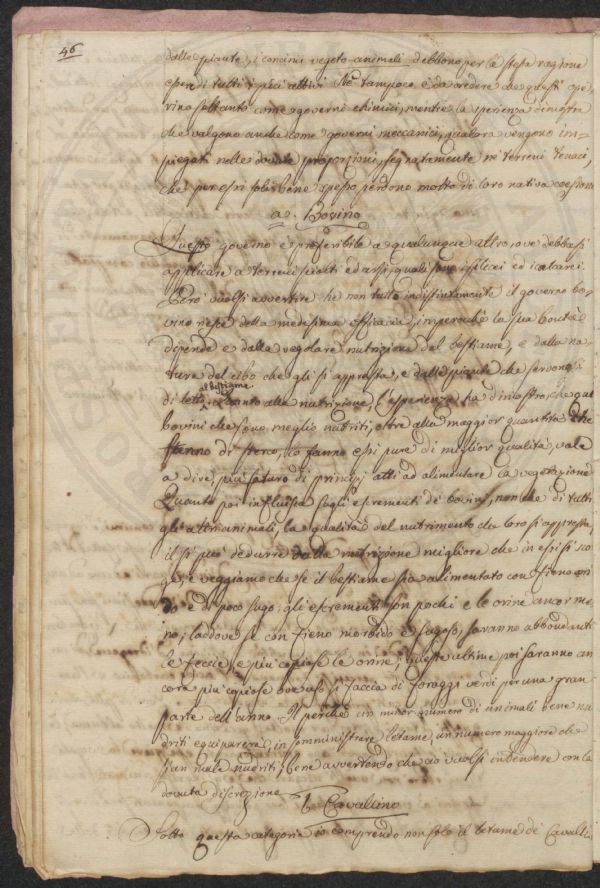 46
dalle piante, i concimi vegeto-animali debbono per la stessa ragione
essere di tutti i più attivi Nè tampoco è da credere che questi ope-
rino soltanto come governi chimici, mentre la sperienza dimostra
che valgono anche come governi meccanici, qualora vengono im-
piegati nelle dovute proporzioni, segnatamente ne' terreni tenaci,
che per essi sebbene spesso perdono molto di loro nativa coesione
a. Bovino
Questo governo è preferibile a qualunque altro, ove debbasi
applicare a terreni sciolti ed arsi, quali sono i silicei ed i calcarei.
Però vuolsi avvertire che non tutto indistintamente il governo bo-
vino riesce della medesima efficacia, imperocchè la sua bontà
dipende e dalla regolare nutrizione del bestiame, e dalla na-
tura del cibo che gli si appresta, e dalle piante che servongli
di letto. al bestiame Quanto alla nutrizione, l'esperienza ha dimostro, che que'
bovini che sono meglio nutriti, oltre alla maggior quantità che
fanno di sterco, lo fanno essi pure di miglior qualità, vale
a dire, più saturo di principj atti ad alimentare la vegetazione
Quanto poi influisca sugli escrementi de' bovini, non che di tutti
gli altri animali, la qualità del nutrimento che loro si appresta,
il si può dedurre dalla nutrizione migliore che in essi si scor-
ge, e veggiamo che se il bestiame sia alimentato con fieno ari-
do e di poco sugo, gli escrementi son pochi e le orine ancor me-
no; laddove se con fieno morbido e sugoso, saranno abbondanti
le feccie, e più copiose le orine; queste ultime poi saranno an-
cora più copiose ove uso si faccia di foraggi verdi per una gran
parte dell'anno. Il perchè un minor numero di animali bene nu-
driti equiparerà, in somministrare letame, un numero maggiore che
sian male nudriti; bene avvertendo che ciò vuolsi intendere con la
dovuta discrezione
b. Cavallino
Sotto questa categoria io comprendo non solo il letame de' Cavalli,